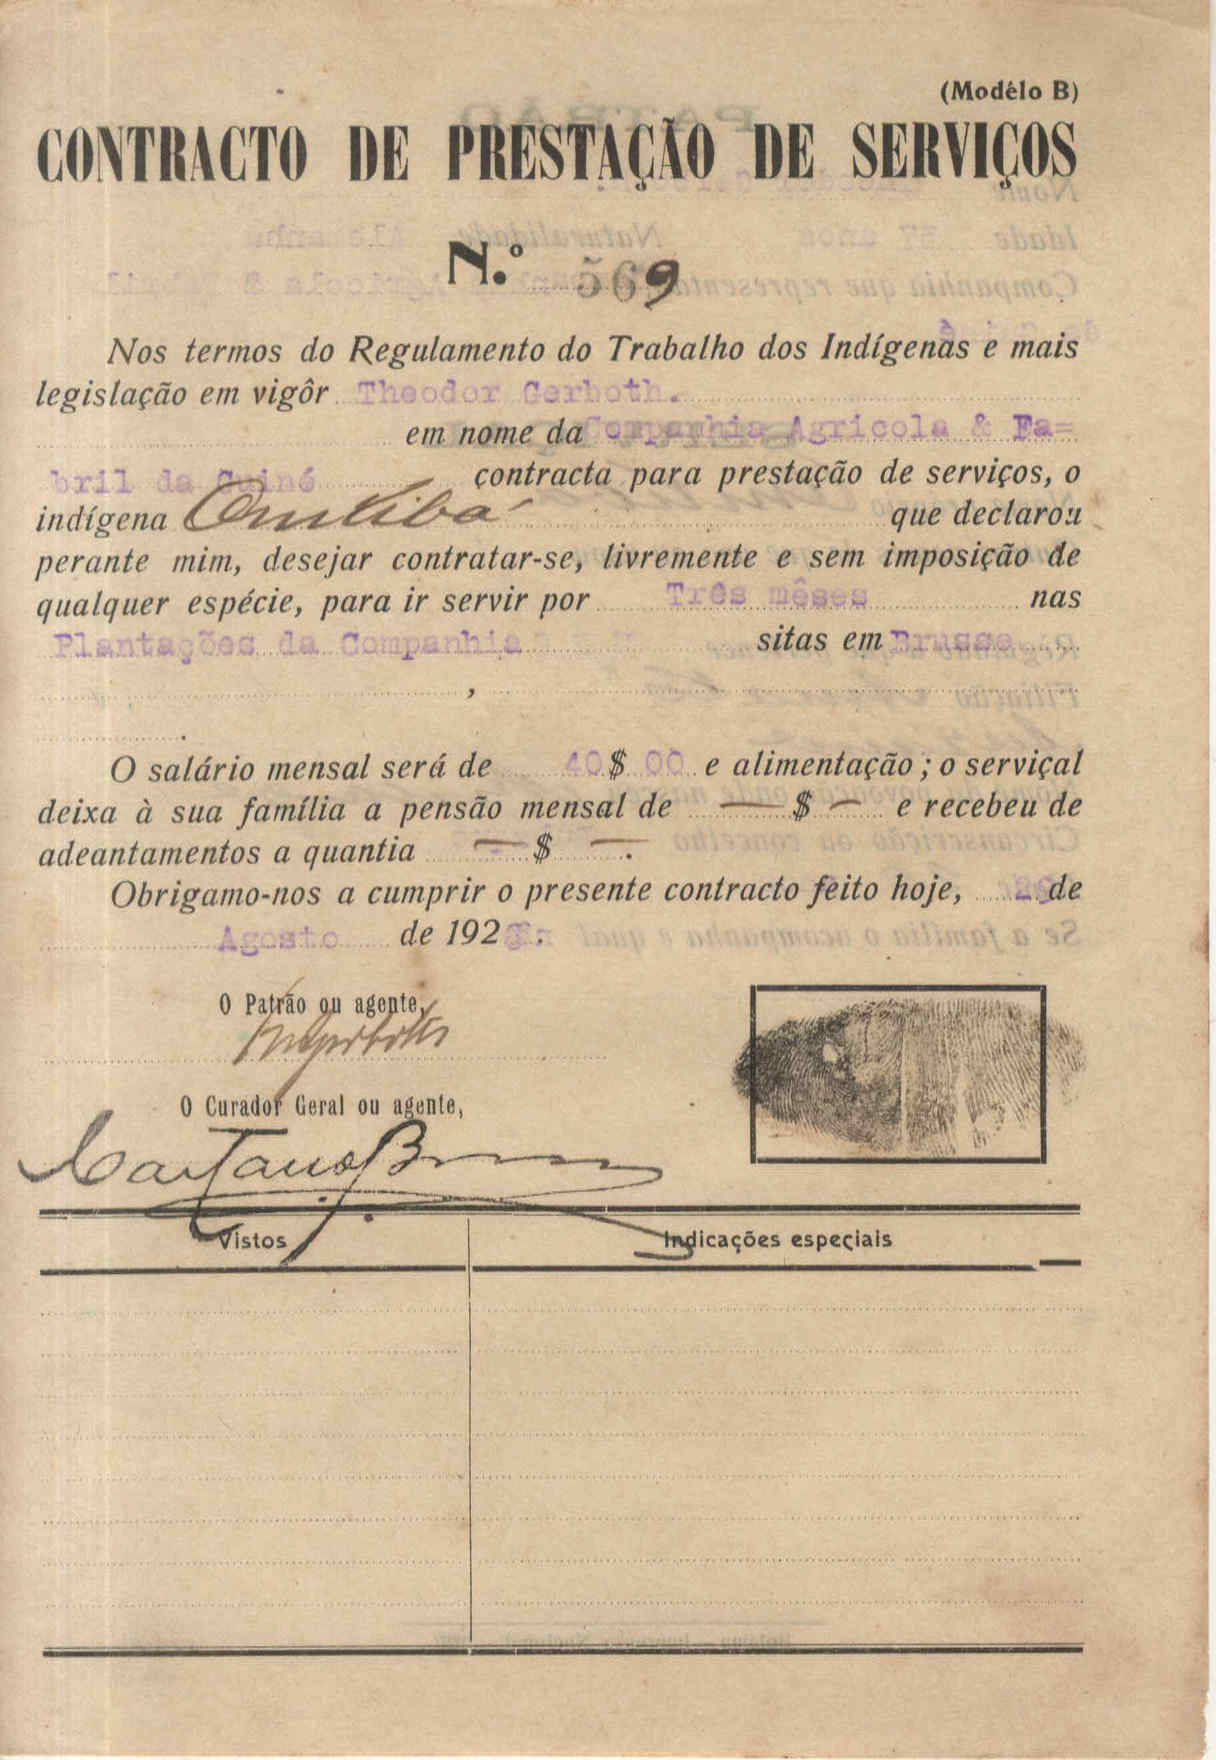 (Modêlo B)
CONTRACTO DE PRESTAÇÃO DE SERVIÇOS
N.º 569
Nos termos do Regulamento do Trabalho dos Indígenas e mais
legislação em vigôr Theodor Gerboth.
em nome da Companhia Agricola & Fa=
bril da Guiné contracta para prestação de serviços, o
indígena que declarou
perante mim, desejar contratar-se, livremente e sem imposição de
qualquer espécie, para ir servir por Três mêses nas
Plantações da Companhia sitas em Brusse
O salário mensal será de 40$00 e alimentação; o serviçal
deixa à sua família a pensão mensal de —$— e recebeu de
adeantamentos a quantia —$—.
Obrigamo-nos a cumprir o presente contracto feito hoje, de
Agosto de 192
O Patrão ou agente,
O Curador Geral ou agente,
Vistos
Indicações especiais